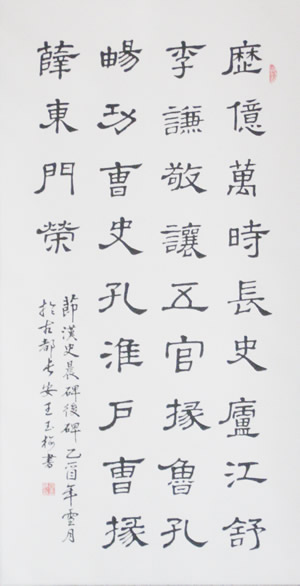 歷億萬時長史廬江舒
李謙敬讓五官掾魯孔
暢功曹史孔淮戶曹掾
薛東門榮
節漢史晨碑後碑乙酉年月
於古都長安王玉梅書